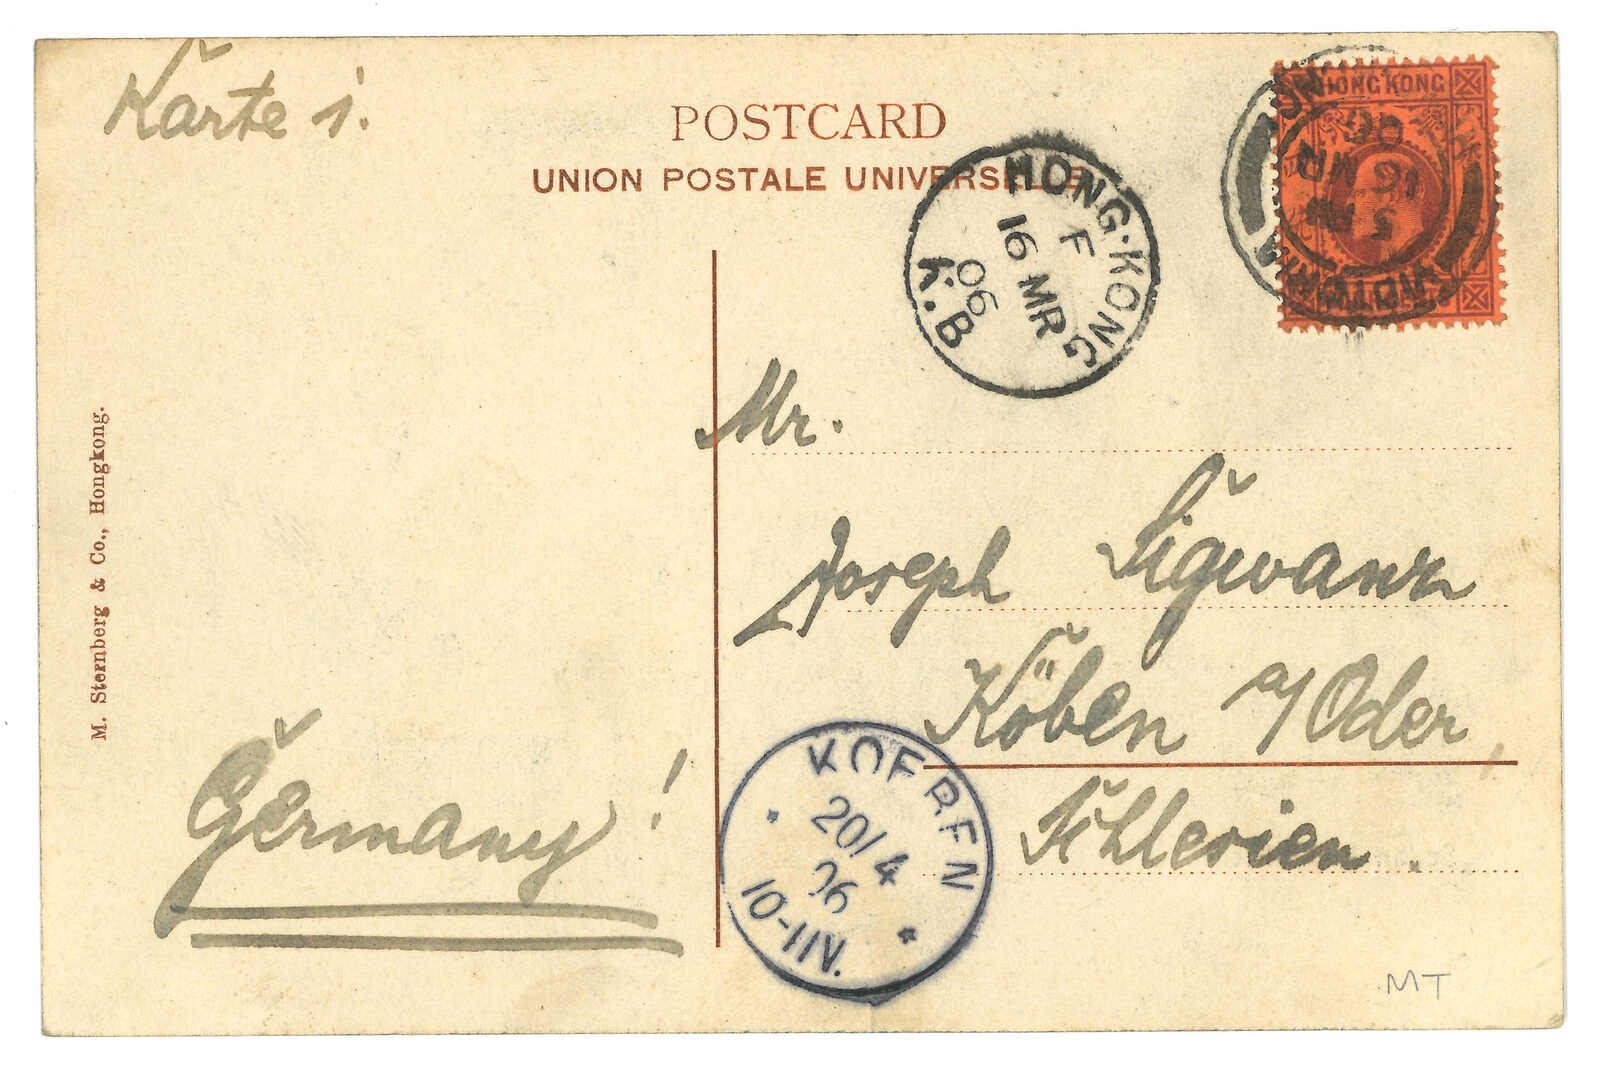 Karte 1.
POSTCARD
UNION POSTALE UNIVERSELLE
HONG KONG
5 PM
16 MR
06
HONG·KONG
F
16 MR
06
K.B
M. Sternberg & Co., Hongkong.
Mr.
Joseph Sigwanz
Köben a/Oder,
Schlesien.
Germany!
KOEBEN
20/4
06
10-11V.
MT